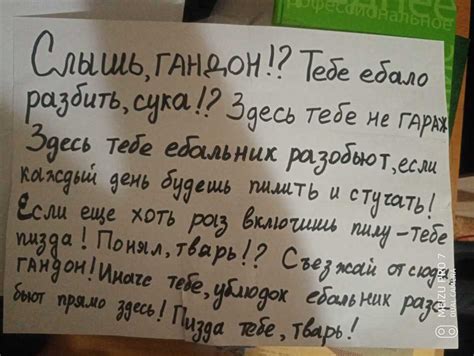 нее
профессиональное
Слышь, гандон!? Тебе ебало
разбить, сука!? Здесь тебе не гараж
Здесь тебе ебальник разобьют, если
каждый день будешь пилить и стучать!
Если еще хоть раз включишь пилу – тебе
пизда! Понял, тварь!? Съезжай отсюда
гандон! Иначе тебе, ублюдок ебальник разо
бьют прямо здесь! Пизда тебе, тварь!
MEIZU PRO 7
DUAL CAMERA